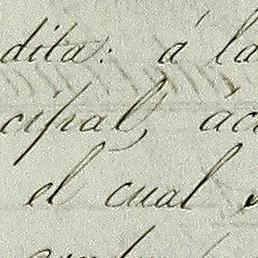 dita: á la
cipal, ác
el cual